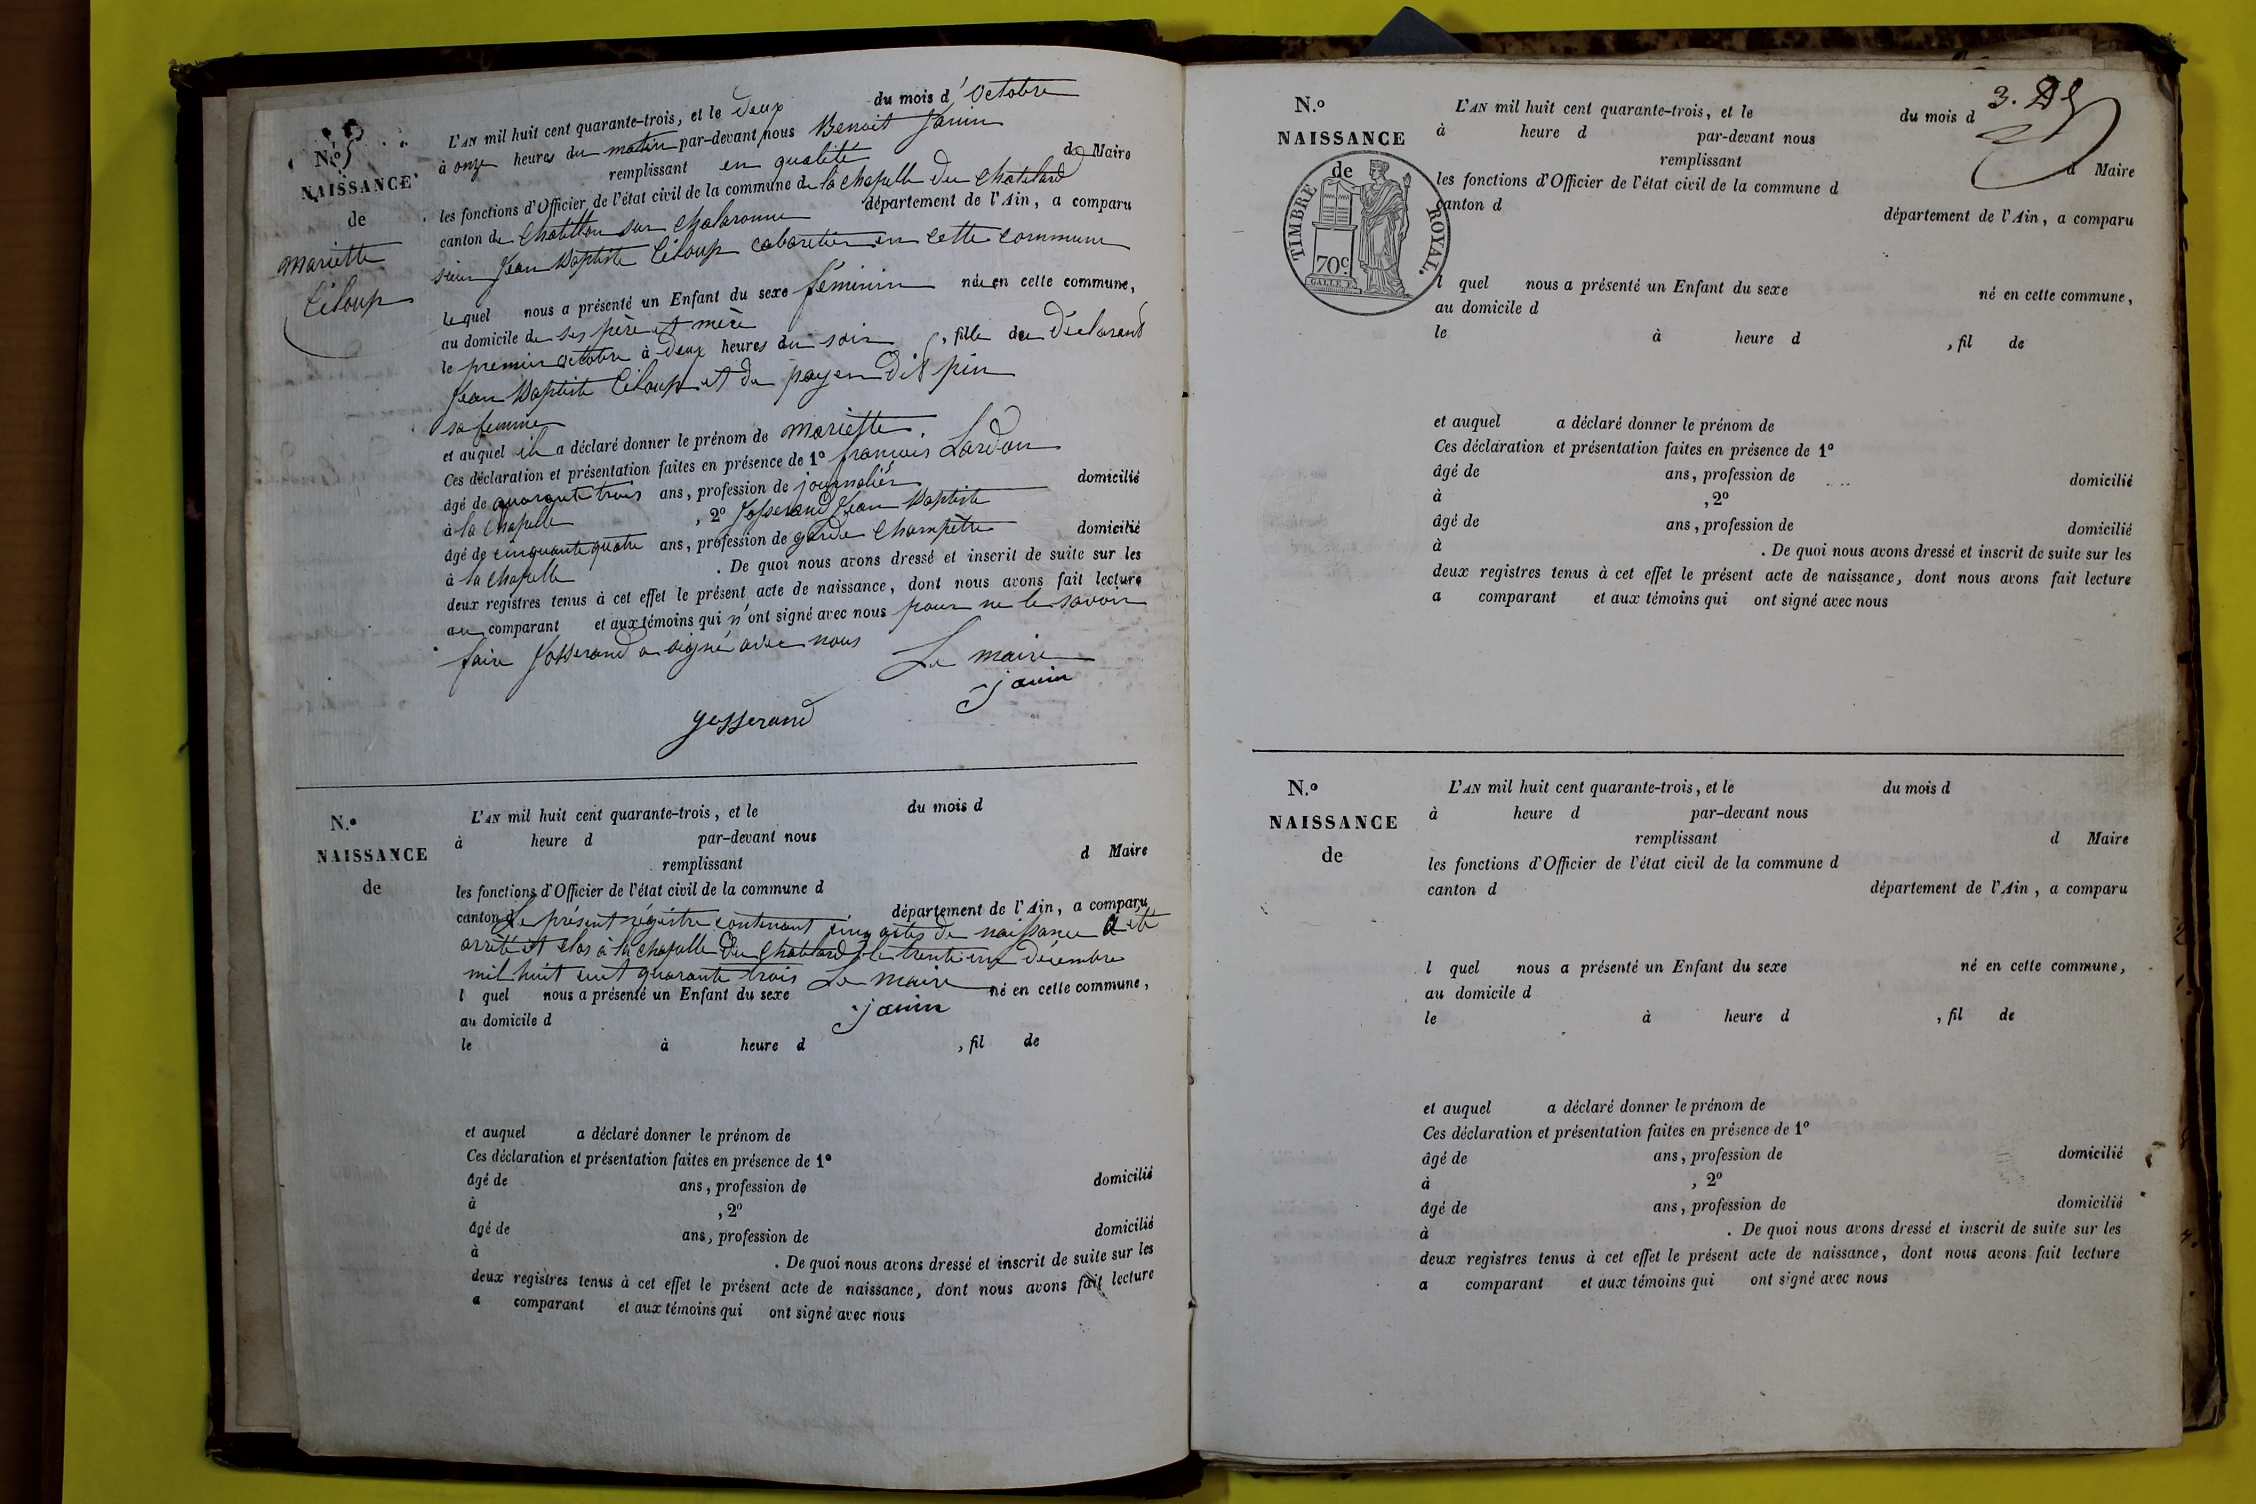 N.º 5
NAISSANCE
de
Mariette
L'AN mil huit cent quarante-trois, et le deux du mois d'octobre
à onze heures du matin par-devant nous Benoit Janin
remplissant en qualité de Maire
les fonctions d'Officier de l'état civil de la commune de la chapelle du chatelard
canton de chatillon sur chalaronne département de l'Ain, a comparu
sieur Jean Baptiste cabaretier en cette commune
lequel nous a présenté un Enfant du sexe féminin née en cette commune,
au domicile de ses père et mère
le premier octobre à deux heures du soir, fille du déclarant
Jean Baptiste et de payen dit pin
sa femme
et auquel il a déclaré donner le prénom de mariette.
Ces déclaration et présentation faites en présence de 1º francois Lardon
âgé de quarante trois ans, profession de journalier domicilié
à la chapelle, 2º Josserand Jean Baptiste
âgé de cinquante quatre ans, profession de garde champêtre domicilié
à la chapelle. De quoi nous avons dressé et inscrit de suite sur les
deux registres tenus à cet effet le présent acte de naissance, dont nous avons fait lecture
au comparant et aux témoins qui n'ont signé avec nous pour ne le savoir
faire Josserand a signé avec nous
Le maire
janin
josserand
N.º
NAISSANCE
de
L'AN mil huit cent quarante-trois, et le du mois d
à heure d par-devant nous
remplissant d Maire
les fonctions d'Officier de l'état civil de la commune d
canton d département de l'Ain, a comparu
Le présent régistre contenant cinq actes de naissance a été
arrêté et clos à la chapelle du chatelard le trente un décembre
mil huit cent quarante trois Le maire
l quel nous a présenté un Enfant du sexe né en cette commune,
janin
au domicile d
le à heure d , fil de
et auquel a déclaré donner le prénom de
Ces déclaration et présentation faites en présence de 1º
âgé de ans, profession de domicilié
à , 2º
âgé de ans, profession de domicilié
à . De quoi nous avons dressé et inscrit de suite sur les
deux registres tenus à cet effet le présent acte de naissance, dont nous avons fait lecture
a comparant et aux témoins qui ont signé avec nous
3.
N.º
NAISSANCE
de
TIMBRE ROYAL.
70c.
L'AN mil huit cent quarante-trois, et le du mois d
à heure d par-devant nous
remplissant d Maire
les fonctions d'Officier de l'état civil de la commune d
canton d département de l'Ain, a comparu
l quel nous a présenté un Enfant du sexe né en cette commune,
au domicile d
le à heure d , fil de
et auquel a déclaré donner le prénom de
Ces déclaration et présentation faites en présence de 1º
âgé de ans, profession de domicilié
à , 2º
âgé de ans, profession de domicilié
à . De quoi nous avons dressé et inscrit de suite sur les
deux registres tenus à cet effet le présent acte de naissance, dont nous avons fait lecture
a comparant et aux témoins qui ont signé avec nous
N.º
NAISSANCE
de
L'AN mil huit cent quarante-trois, et le du mois d
à heure d par-devant nous
remplissant d Maire
les fonctions d'Officier de l'état civil de la commune d
canton d département de l'Ain, a comparu
l quel nous a présenté un Enfant du sexe né en cette commune,
au domicile d
le à heure d , fil de
et auquel a déclaré donner le prénom de
Ces déclaration et présentation faites en présence de 1º
âgé de ans, profession de domicilié
à , 2º
âgé de ans, profession de domicilié
à . De quoi nous avons dressé et inscrit de suite sur les
deux registres tenus à cet effet le présent acte de naissance, dont nous avons fait lecture
a comparant et aux témoins qui ont signé avec nous